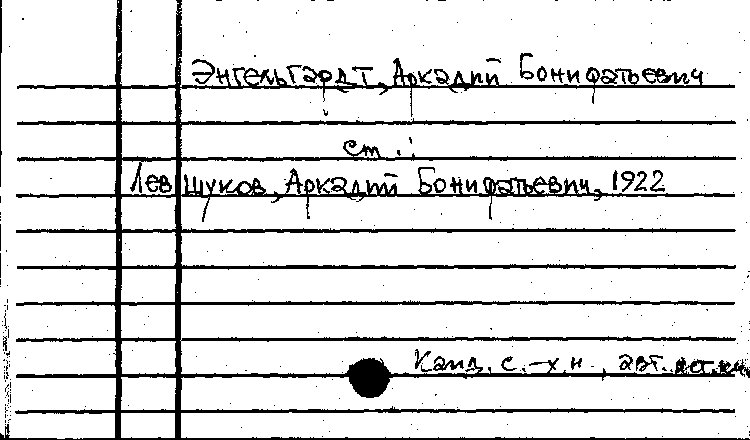 Энгельгардт, Аркадий Бонифатьевич
см.:
Левшуков, Аркадий Бонифатьевич, 1922
Канд. с.-х. н., авт.